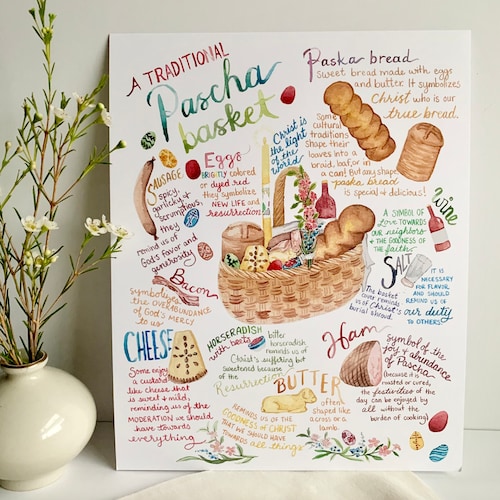 A TRADITIONAL
Pascha
basket
Paska bread
Sweet bread made with eggs
and butter. It symbolizes
Christ who is our
true bread.
Some
cultural
traditions
shape their
loaves into a
braid, loaf, or in
a can! But any shape
paska bread
is special & delicious!
Christ is
the light
of the
world
Eggs
BRIGHTLY colored
or dyed red
they symbolize
NEW LIFE and
resurrection
SAUSAGE
spicy,
garlicky &
scrumptious,
they
remind us of
God's favor and
generosity
Wine
A SYMBOL OF
Love TOWARDS
OUR neighbors
& THE GOODNESS OF
the faith
SALT
IT IS
NECESSARY
FOR FLAVOR
AND SHOULD
REMIND US OF
our duty
TO OTHERS
The basket
cover reminds
us of Christ's
burial shroud.
Bacon
symbolizes
the OVERABUNDANCE
OF GOD'S MERCY
TO US
CHEESE
Some enjoy
a custard-
like cheese that
is sweet & mild,
reminding us of the
MODERATION we should
have towards
everything
HORSERADISH
with beets
bitter
horseradish
reminds us of
Christ's suffering but
sweetened because
of the
Resurrection
BUTTER
often
shaped like
a cross or
a lamb.
REMINDS US OF THE
GOODNESS OF CHRIST
THAT WE SHOULD HAVE
TOWARDS all things
Ham
Symbol of the
joy & abundance
of Pascha
(because it is
roasted or cured,
the festivities of the
day can be enjoyed by
all without the
burden of cooking)